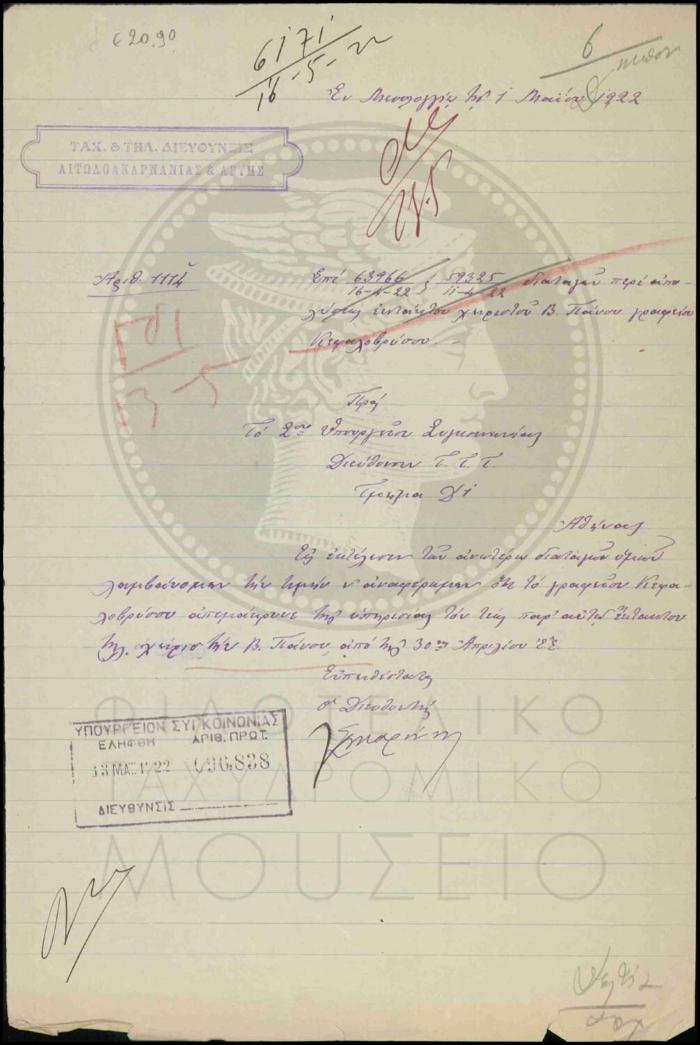 62090
6171
16-5-22
6
Ἐν Μεσολογγίῳ τῇ 1 Μαΐου 1922
ΤΑΧ. & ΤΗΛ. ΔΙΕΥΘΥΝΣΙΣ
ΑΙΤΩΛΟΑΚΑΡΝΑΝΙΑΣ & ΑΡΤΗΣ
Ἀριθ. 1114
Ἐπὶ 63966 59325 διαταγῶν περὶ ἀπο-
16-4-22 11-4-22
λύσεως ἐκτάκτου χειριστοῦ Β. Πάνου γραφείου
Κεφαλοβρύσου.
Πρὸς
Τὸ Σον Ὑπουργεῖον Συγκοινωνίας
Διεύθυνσιν Τ. Τ. Τ.
Τμῆμα
Ἀθήνας
Εἰς ἐκτέλεσιν τῶν ἀνωτέρω διαταγῶν ὑμῶν
λαμβάνομεν τὴν τιμὴν ν' ἀναφέρωμεν ὅτι τὸ γραφεῖον Κεφα-
λοβρύσου ἀπεμάκρυνε τῆς ὑπηρεσίας τὸν παρ' αὐτῷ ἔκτακτον
τηλ. χειριστὴν Β. Πάνου ἀπὸ τῆς 30ης Ἀπριλίου ἐ.ἔ.
Εὐπειθέστατος
ὁ Διευθυντὴς
ΥΠΟΥΡΓΕΙΟΝ ΣΥΓΚΟΙΝΩΝΙΑΣ
ΕΛΗΦΘΗ ΑΡΙΘ. ΠΡΩΤ.
13 ΜΑΙ 1922 096,838
ΔΙΕΥΘΥΝΣΙΣ
ΦΙΛΟΤΕΛΙΚΟ
ΤΑΧΥΔΡΟΜΙΚΟ
ΜΟΥΣΕΙΟ